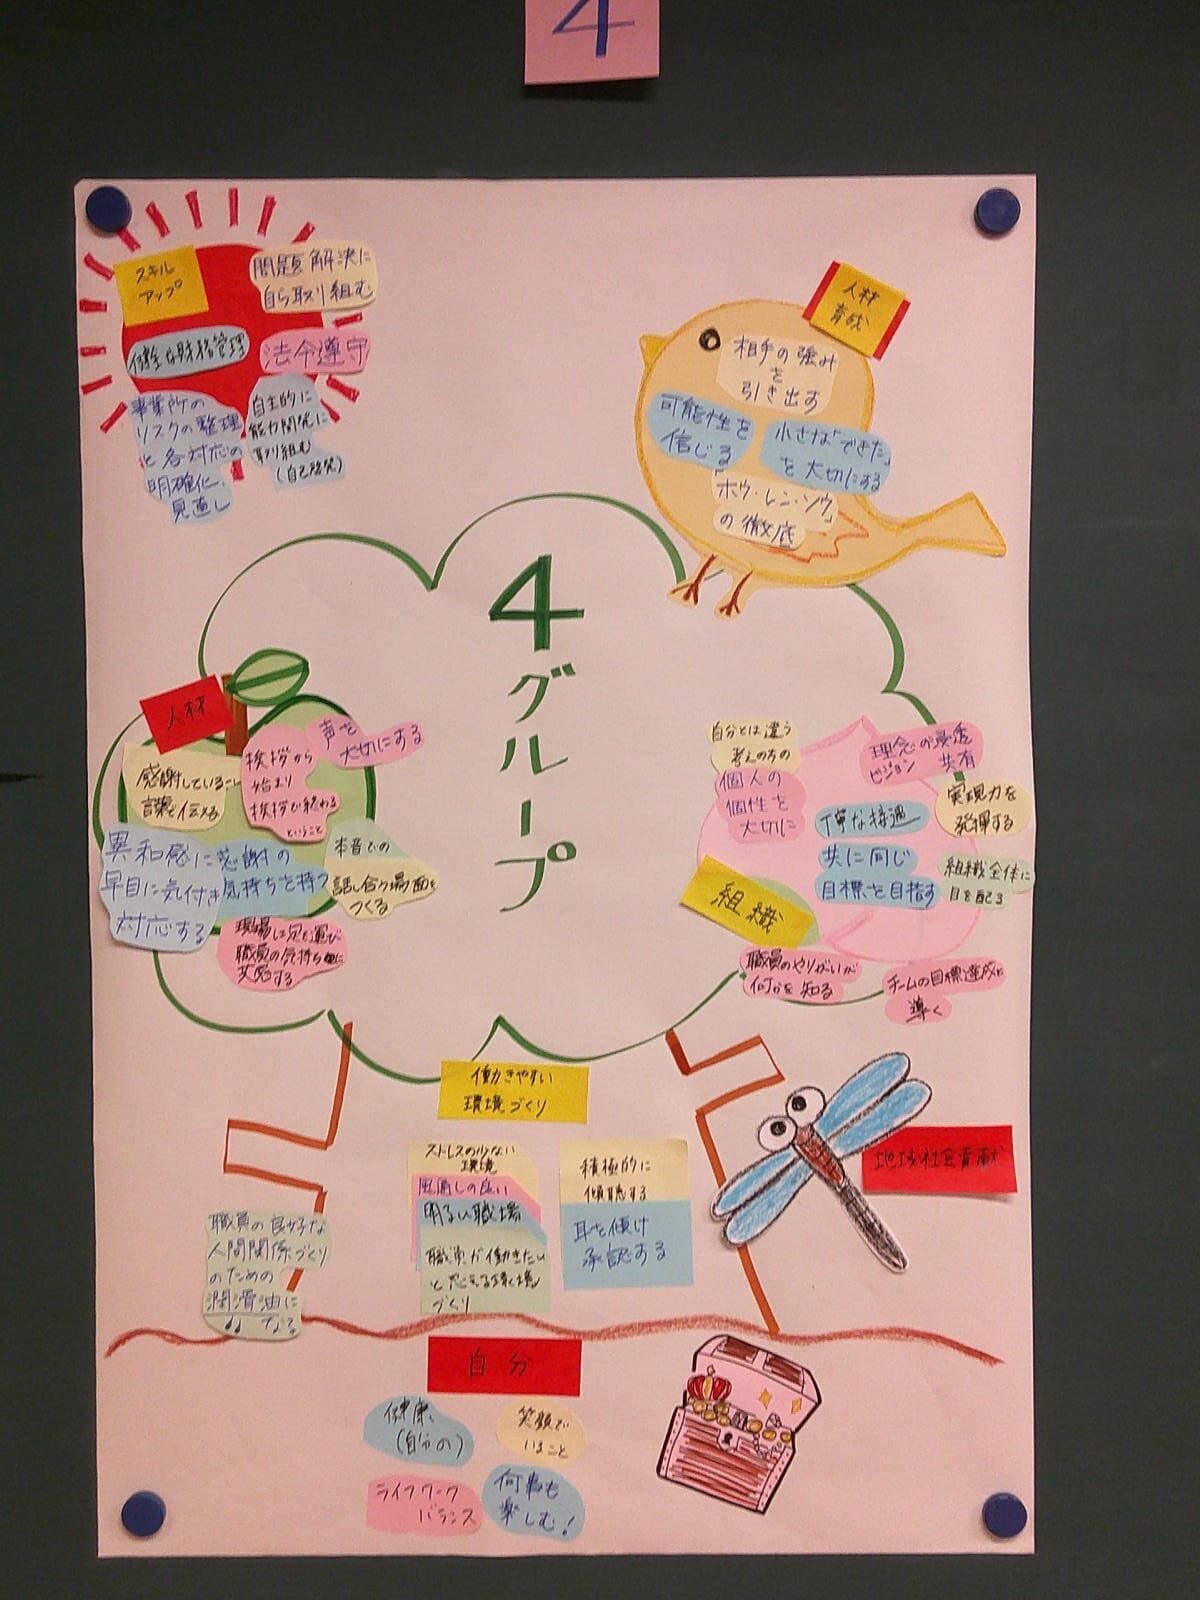 4
スキル
アップ
問題解決に
自ら取り組む
健全な財務管理
法令遵守
事業所の
リスクの整理
と各対応の
明確化、
見直し
自主的に
能力開発に
取り組む
(自己啓発)
人材
育成
相手の強み
を
引き出す
可能性を
信じる
小さな「できた」
を大切にする
「ホウ・レン・ソウ」
の徹底
4グループ
人材
声を
大切にする
挨拶から
始まり
挨拶で終わる
ということ
感謝していることを
言葉で伝える
異和感に
早目に気付き
対応する
感謝の
気持ちを持つ
本音での
話し合う場面を
つくる
現場に足を運び
職員の気持ちに
共感する
自分とは違う
考えの方の
個人の
個性を
大切に
理念の浸透
ビジョン 共有
丁寧な接遇
実現力を
発揮する
共に同じ
目標を目指す
組織全体に
目を配る
組織
職員のやりがいが
何かを知る
チームの目標達成に
導く
働きやすい
環境づくり
ストレスの少ない
環境
風通しの良い
明るい職場
職員が働きたい
と思える環境
づくり
積極的に
傾聴する
耳を傾け
承認する
地域社会貢献
職員の良好な
人間関係づくり
のための
潤滑油に
なる
自分
健康、
(自分の)
笑顔で
いること
ライフワーク
バランス
何事も
楽しむ!